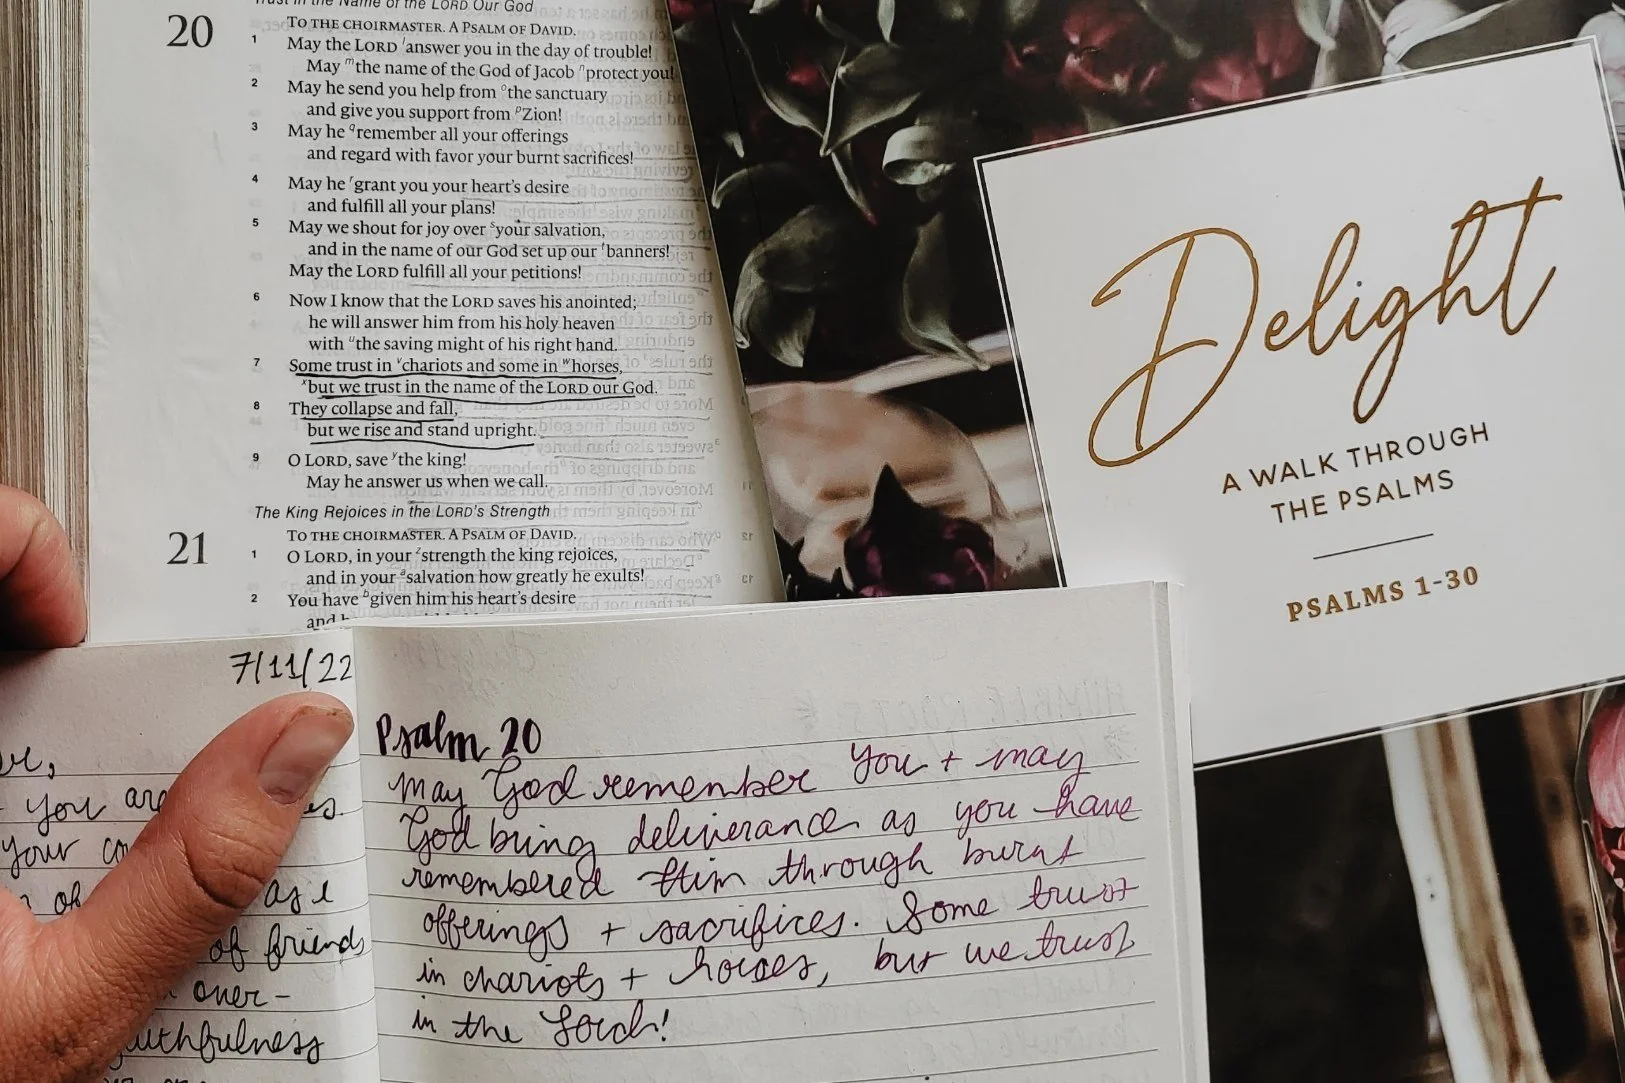 Trust in the Name of the LORD Our God
20
TO THE CHOIRMASTER. A PSALM OF DAVID.
1 May the LORD lanswer you in the day of trouble!
May mthe name of the God of Jacob nprotect you!
2 May he send you help from othe sanctuary
and give you support from pZion!
3 May he qremember all your offerings
and regard with favor your burnt sacrifices!
4 May he rgrant you your heart's desire
and fulfill all your plans!
5 May we shout for joy over syour salvation,
and in the name of our God set up our tbanners!
May the LORD fulfill all your petitions!
6 Now I know that the LORD saves his anointed;
he will answer him from his holy heaven
with uthe saving might of his right hand.
7 Some trust in vchariots and some in whorses,
xbut we trust in the name of the LORD our God.
8 They collapse and fall,
but we rise and stand upright.
9 O LORD, save ythe king!
May he answer us when we call.
The King Rejoices in the LORD's Strength
21
TO THE CHOIRMASTER. A PSALM OF DAVID.
1 O LORD, in your zstrength the king rejoices,
and in your asalvation how greatly he exults!
2 You have bgiven him his heart's desire
and
Delight
A WALK THROUGH
THE PSALMS
PSALMS 1-30
7/11/22
you are
your
as I
of friends
over-
faithfulness
Psalm 20
May God remember you + may
God bring deliverance as you have
remembered Him through burnt
offerings + sacrifices. Some trust
in chariots + horses, but we trust
in the Lord!